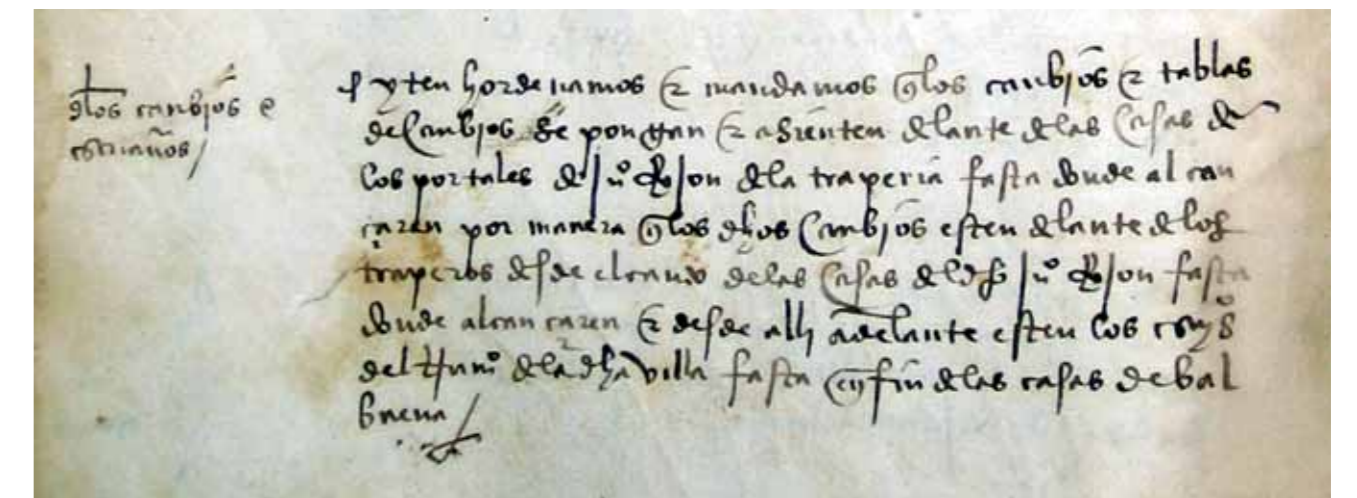 L
dlos canbjos e
estraños /
yten hordenamos e mandamos qlos canbjos e tablas
de canbjos se pongan e asienten delante delas casas de
los portales de juº de leon dela traperia fasta donde alcan
çaren por manera qlos dhos canbjos esten delante delos
traperos desde el canto delas casas del dho juº de leon fasta
donde alcançaren e desde allj adelante esten los
del dela dha villa fasta en fin delas casas de bal
buena /